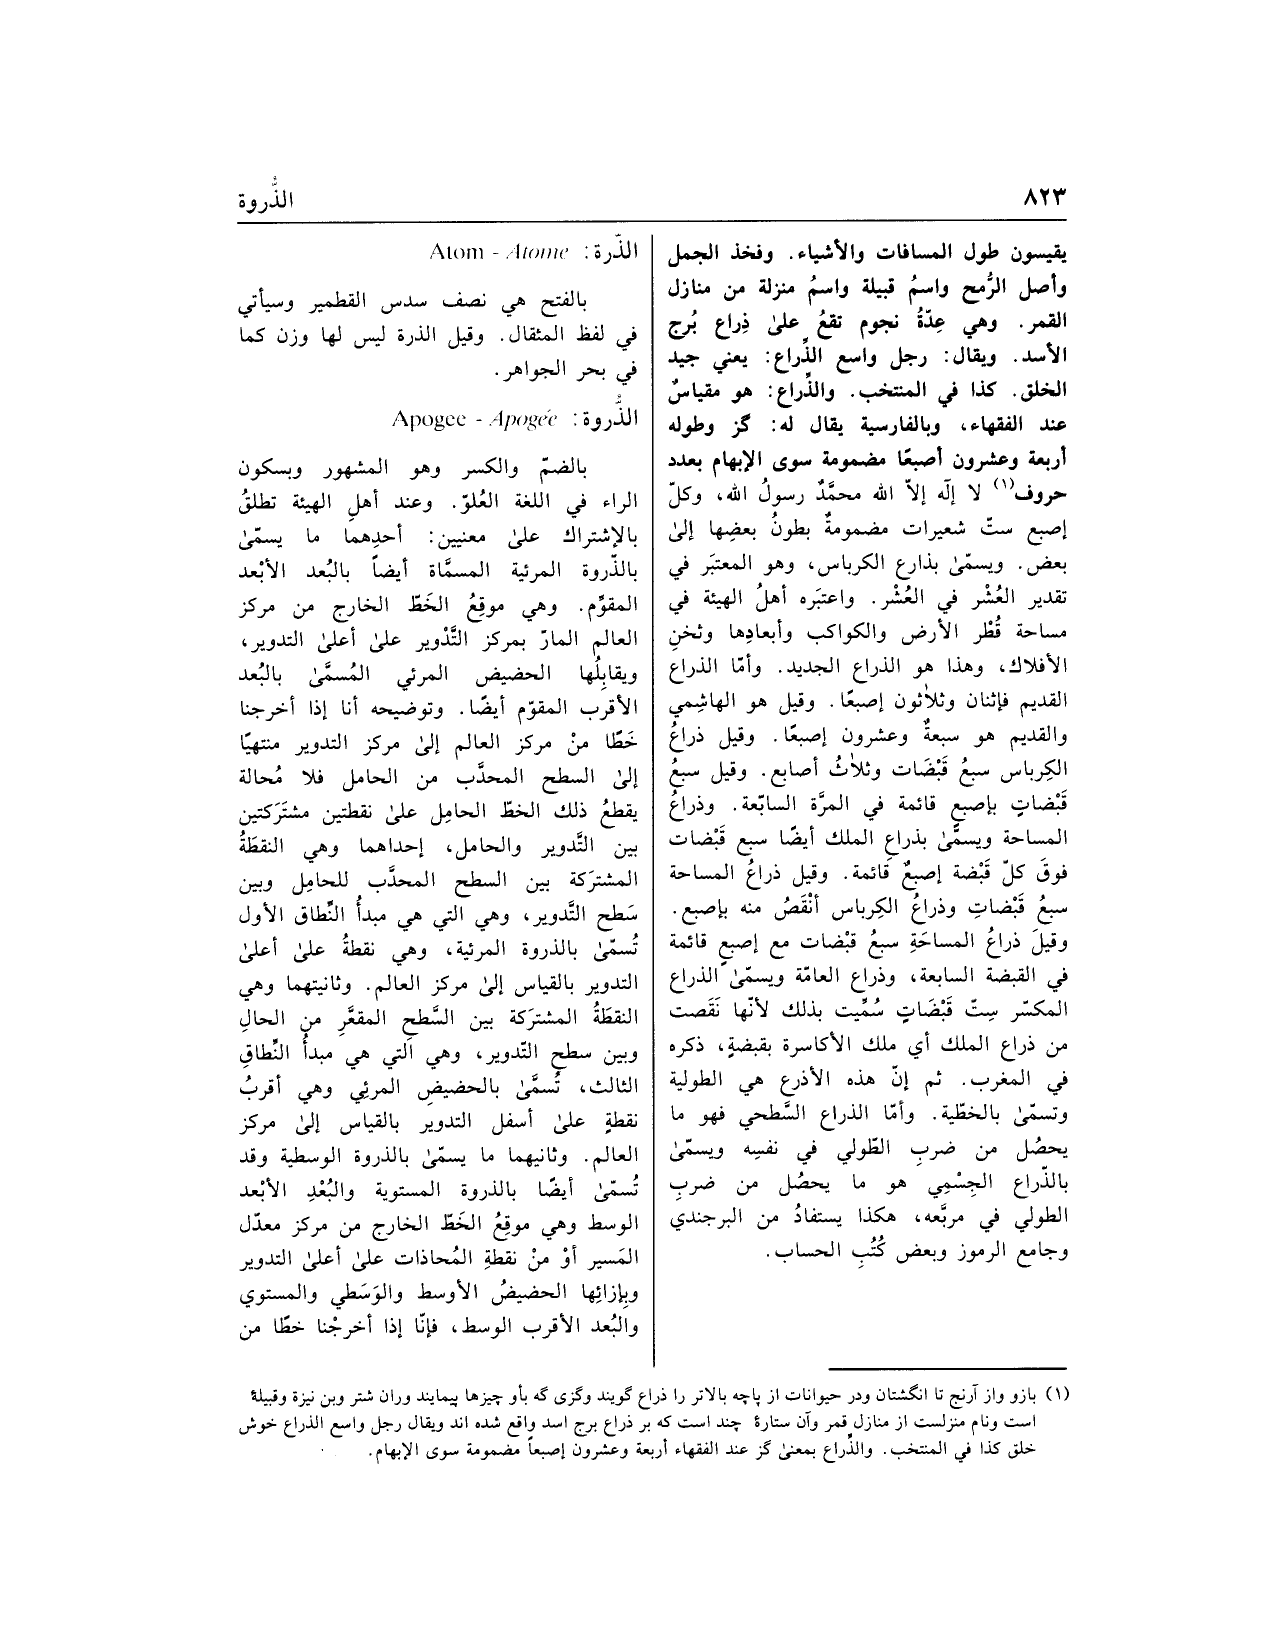 ٨٢٣
الذُّروة
يقيسون طول المسافات والأشياء. وفخذ الجمل
وأصل الرُّمح واسمُ قبيلة واسمُ منزلة من منازل
القمر. وهي عِدّةُ نجوم تقعُ علىٰ ذِراع بُرج
الأسد. ويقال: رجل واسع الذِّراع: يعني جيد
الخلق. كذا في المنتخب. والذِّراع: هو مقياسٌ
عند الفقهاء، وبالفارسية يقال له: گز وطوله
أربعة وعشرون أصبعًا مضمومة سوى الإبهام بعدد
حروف(١) لا إلٰه إلاّ الله محمَّدٌ رسولُ الله، وكلّ
إصبع ستّ شعيرات مضمومةٌ بطونُ بعضِها إلىٰ
بعض. ويسمّىٰ بذارع الكرباس، وهو المعتبَر في
تقدير العُشْر في العُشْر. واعتبَره أهلُ الهيئة في
مساحة قُطْر الأرض والكواكب وأبعادِها وثخنِ
الأفلاك، وهذا هو الذراع الجديد. وأمّا الذراع
القديم فإثنان وثلاثون إصبعًا. وقيل هو الهاشِمي
والقديم هو سبعةٌ وعشرون إصبعًا. وقيل ذراعُ
الكِرباس سبعُ قَبْضَات وثلاثُ أصابع. وقيل سبعُ
قَبْضاتٍ بإصبعٍ قائمة في المرَّة السابّعة. وذراعُ
المساحة ويسمَّىٰ بذراع الملك أيضًا سبع قَبْضات
فوقَ كلّ قَبْضة إصبعٌ قائمة. وقيل ذراعُ المساحة
سبعُ قَبْضاتِ وذراعُ الكِرباس أنْقَصُ منه بإصبع.
وقيلَ ذراعُ المساحَةِ سبعُ قبْضات مع إصبعٍ قائمة
في القبضة السابعة، وذراع العامّة ويسمّىٰ الذراع
المكسّر سِتّ قَبْضَاتٍ سُمِّيت بذلك لأنّها نَقَصت
من ذراع الملك أي ملك الأكاسرة بقبضةٍ، ذكره
في المغرب. ثم إنّ هذه الأذرع هي الطولية
وتسمّىٰ بالخطّية. وأمّا الذراع السَّطحي فهو ما
يحصُل من ضربِ الطّولي في نفسِه ويسمّىٰ
بالذّراع الجِسْمِي هو ما يحصُل من ضربِ
الطولي في مربَّعه، هكذا يستفادُ من البرجندي
وجامع الرموز وبعض كُتُبِ الحساب.
الذّرة: Atom - Atome
بالفتح هي نصف سدس القطمير وسيأتي
في لفظ المثقال. وقيل الذرة ليس لها وزن كما
في بحر الجواهر.
الذُّروة: Apogee - Apogée
بالضمّ والكسر وهو المشهور وبسكون
الراء في اللغة العُلوّ. وعند أهلِ الهيئة تطلقُ
بالإشتراك علىٰ معنيين: أحدِهما ما يسمّىٰ
بالذّروة المرئية المسمَّاة أيضاً بالبُعد الأبْعد
المقوِّم. وهي موقِعُ الخَطّ الخارج من مركز
العالم المارّ بمركز التَّدْوير علىٰ أعلىٰ التدوير،
ويقابِلُها الحضيض المرئي المُسمَّىٰ بالبُعد
الأقرب المقوّم أيضًا. وتوضيحه أنا إذا أخرجنا
خَطًّا منْ مركز العالم إلىٰ مركز التدوير منتهيًا
إلىٰ السطح المحدَّب من الحامل فلا مُحالة
يقطعُ ذلك الخطّ الحامِل علىٰ نقطتين مشتَرَكتين
بين التَّدوير والحامل، إحداهما وهي النقطَةُ
المشتركة بين السطح المحدَّب للحامِل وبين
سَطح التَّدوير، وهي التي هي مبدأُ النِّطاق الأول
تُسمّىٰ بالذروة المرئية، وهي نقطةُ علىٰ أعلىٰ
التدوير بالقياس إلىٰ مركز العالم. وثانيتهما وهي
النقطَةُ المشترَكة بين السَّطحِ المقعَّرِ من الحالِ
وبين سطح التّدوير، وهي التي هي مبدأُ النِّطاقِ
الثالث، تُسمَّىٰ بالحضيضِ المرئِي وهي أقربُ
نقطةٍ علىٰ أسفل التدوير بالقياس إلىٰ مركز
العالم. وثانيهما ما يسمّىٰ بالذروة الوسطية وقد
تُسمّىٰ أيضًا بالذروة المستوية والبُعْدِ الأبْعد
الوسط وهي موقِعُ الخَطّ الخارج من مركز معدّل
المَسير أوْ منْ نقطةِ المُحاذات علىٰ أعلىٰ التدوير
وبِإزائِها الحضيضُ الأوسط والوَسَطي والمستوي
والبُعد الأقرب الوسط، فإنّا إذا أخرجْنا خطًّا من
(١) بازو واز آرنج تا انگشتان ودر حيوانات از پاچه بالاتر را ذراع گويند وگزى گه بأو چيزها پيمايند وران شتر وبن نيزة وقبيلۀ
است ونام منزلست از منازل قمر وآن ستارۀ چند است كه بر ذراع برج اسد واقع شده اند ويقال رجل واسع الذراع خوش
خلق كذا في المنتخب. والذِّراع بمعنىٰ گز عند الفقهاء أربعة وعشرون إصبعاً مضمومة سوى الإبهام.